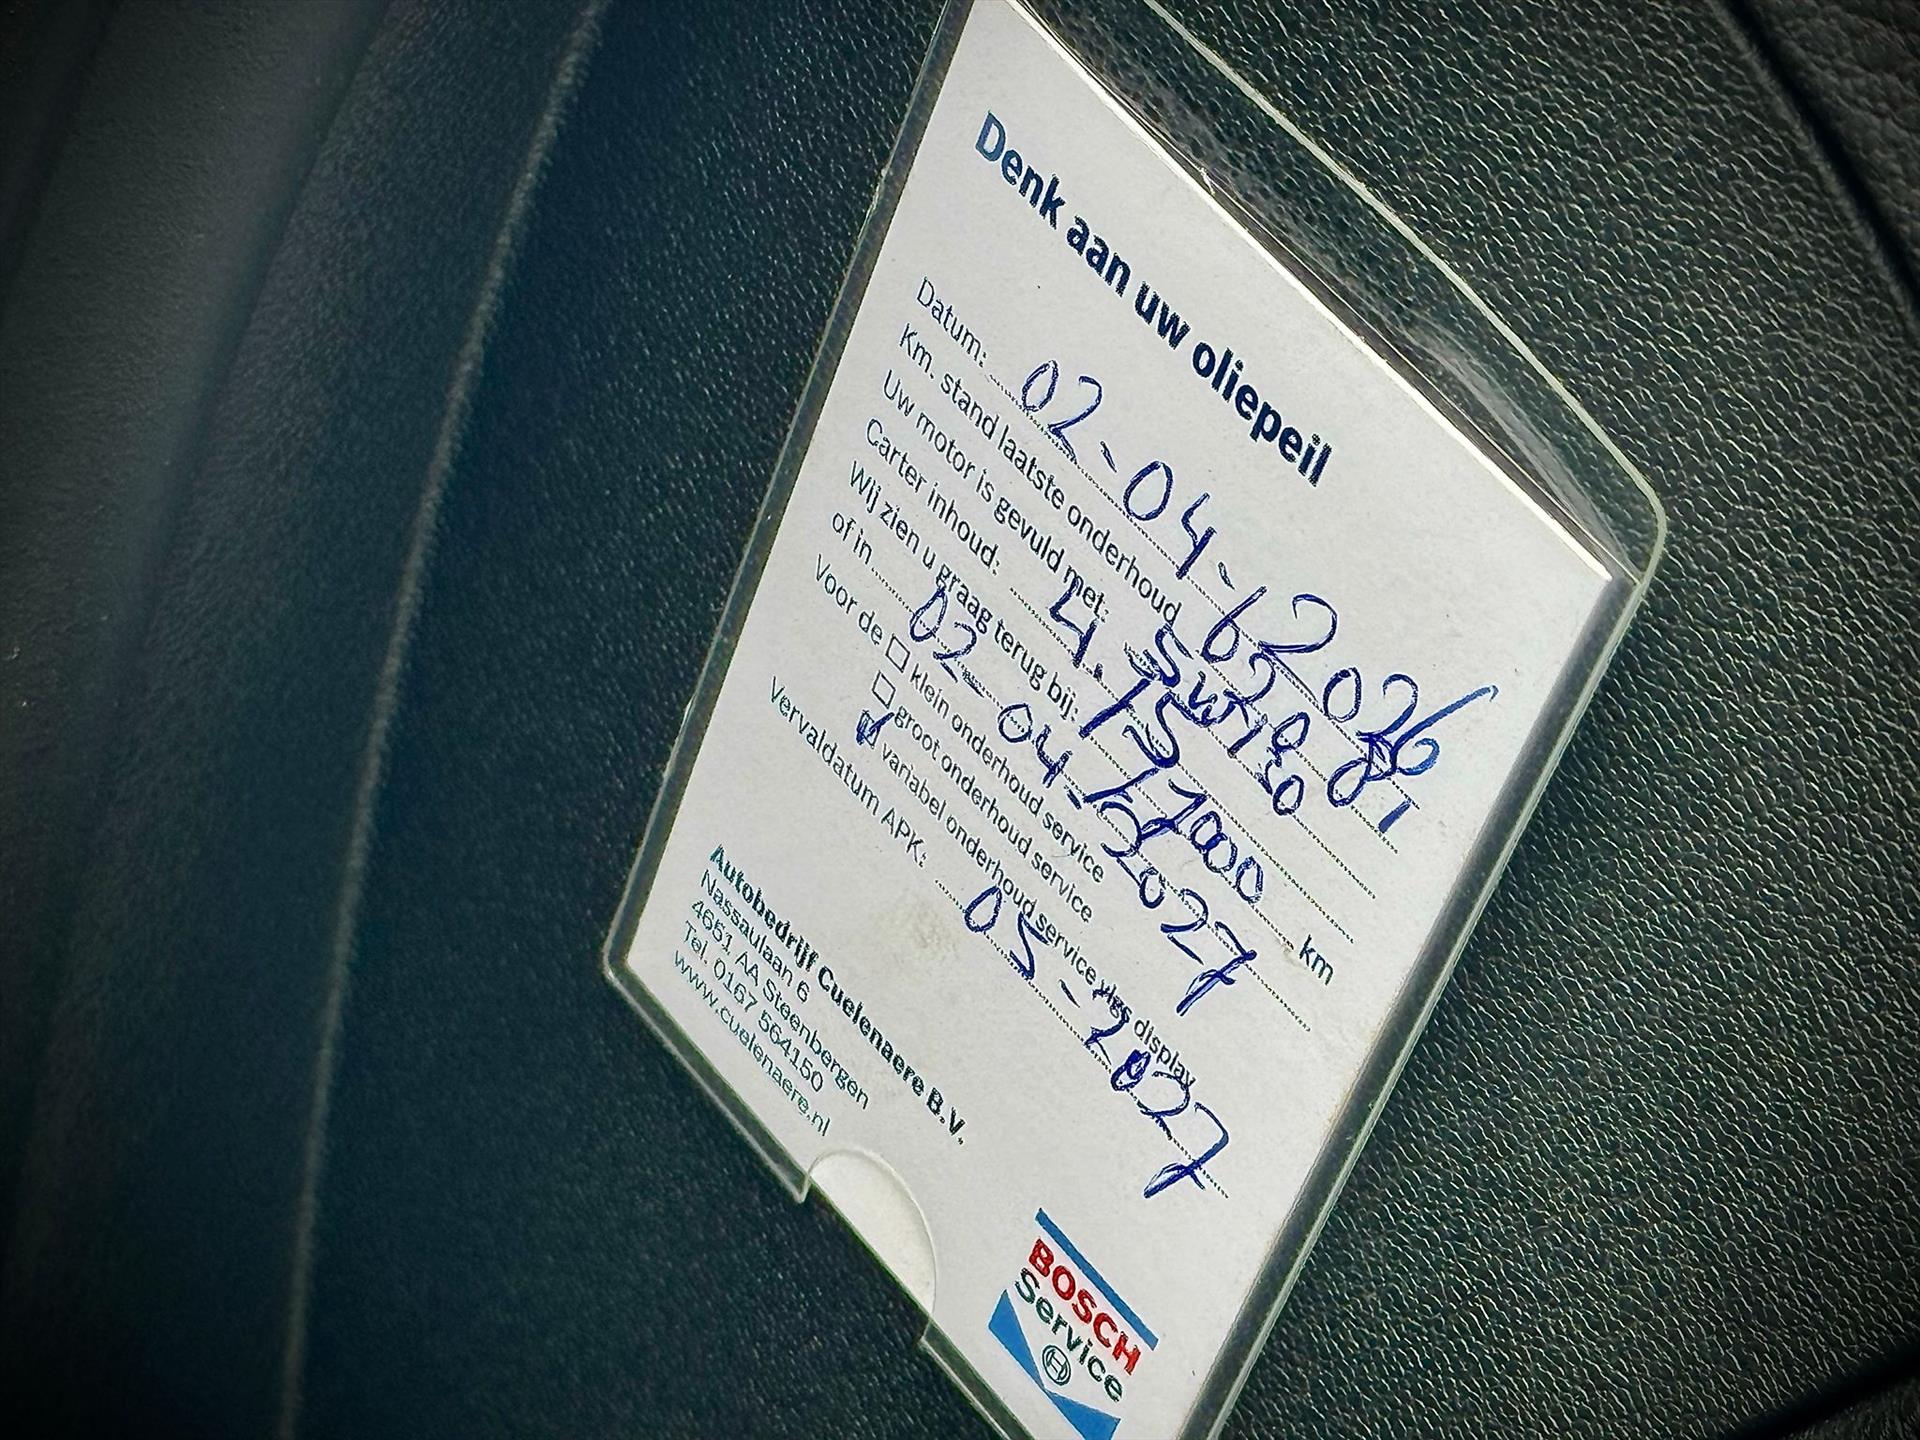 Denk aan uw oliepeil
Datum: 02-04-2026
Km. stand laatste onderhoud 62981
Uw motor is gevuld met: 5W30
Carter inhoud: 4.15
Wij zien u graag terug bij: 77000 km
of in 02-04-2027
Voor de klein onderhoud service
groot onderhoud service
variabel onderhoud service vlgs display
Vervaldatum APK: 05-2027
Autobedrijf Cuelenaere B.V.
Nassaulaan 6
4651 AA Steenbergen
Tel. 0167 564150
www.cuelenaere.nl
BOSCH
Service